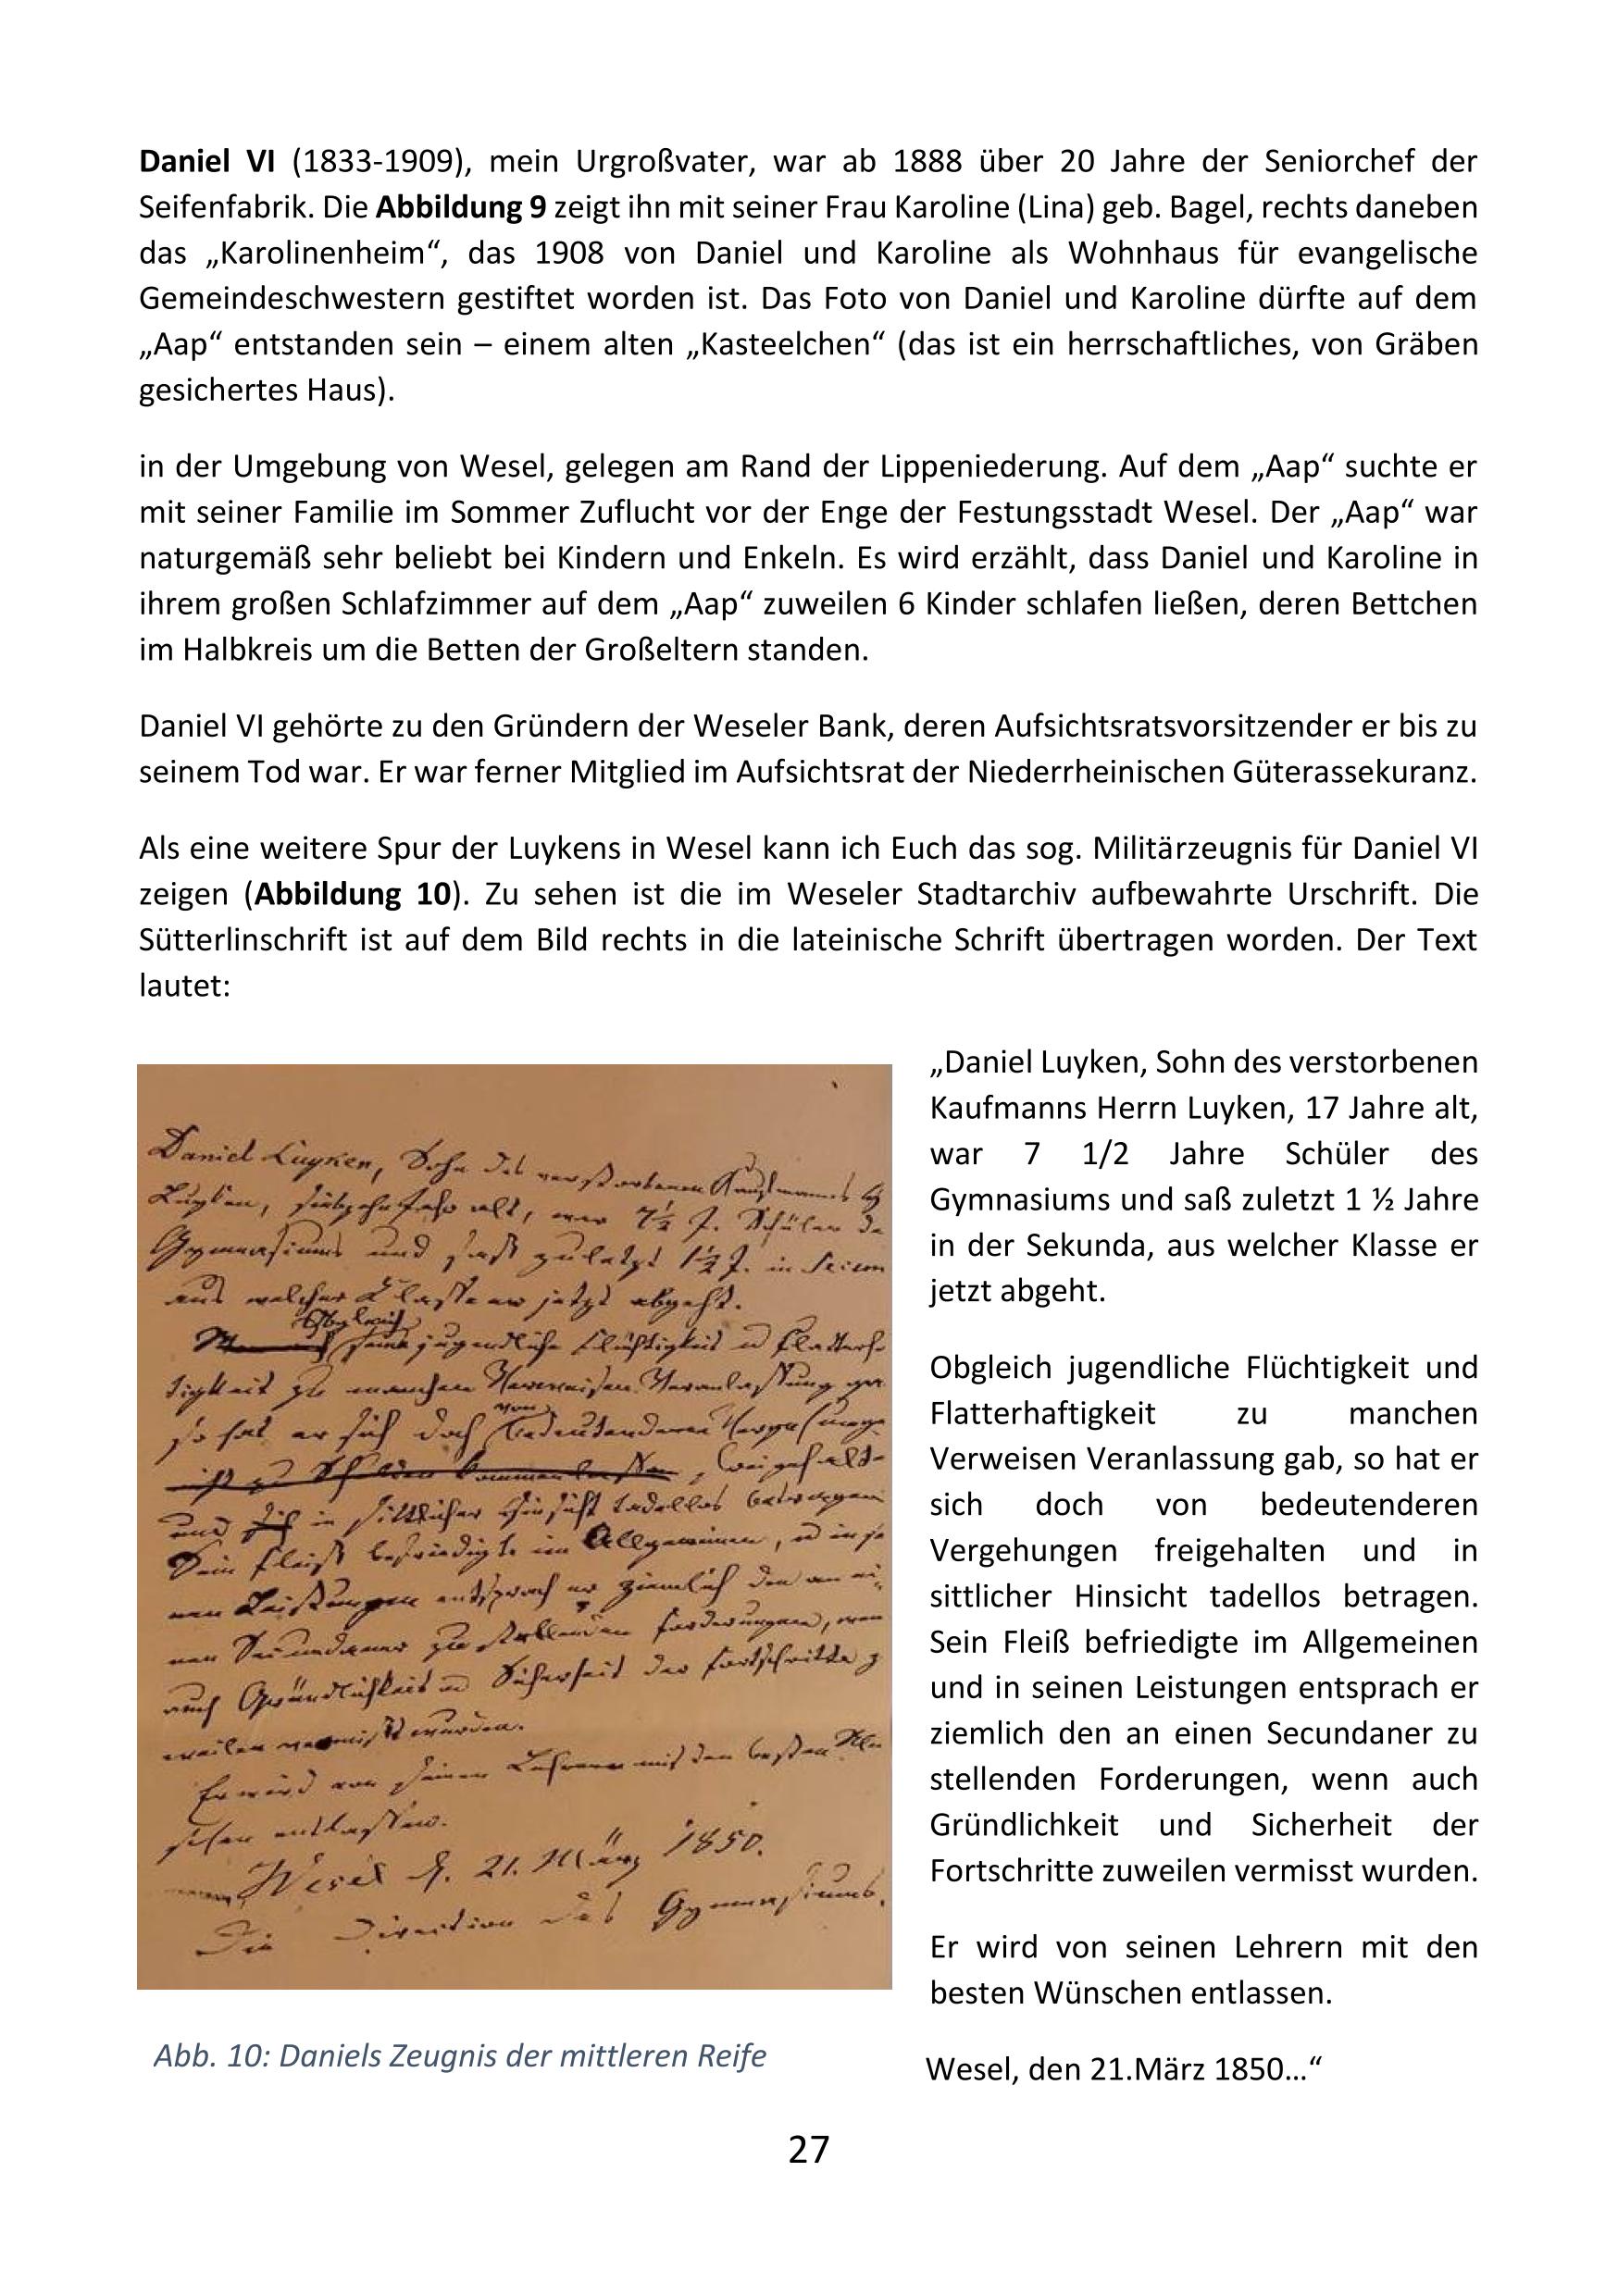 Daniel VI (1833-1909), mein Urgroßvater, war ab 1888 über 20 Jahre der Seniorchef der
Seifenfabrik. Die Abbildung 9 zeigt ihn mit seiner Frau Karoline (Lina) geb. Bagel, rechts daneben
das „Karolinenheim“, das 1908 von Daniel und Karoline als Wohnhaus für evangelische
Gemeindeschwestern gestiftet worden ist. Das Foto von Daniel und Karoline dürfte auf dem
„Aap“ entstanden sein – einem alten „Kasteelchen“ (das ist ein herrschaftliches, von Gräben
gesichertes Haus).
in der Umgebung von Wesel, gelegen am Rand der Lippeniederung. Auf dem „Aap“ suchte er
mit seiner Familie im Sommer Zuflucht vor der Enge der Festungsstadt Wesel. Der „Aap“ war
naturgemäß sehr beliebt bei Kindern und Enkeln. Es wird erzählt, dass Daniel und Karoline in
ihrem großen Schlafzimmer auf dem „Aap“ zuweilen 6 Kinder schlafen ließen, deren Bettchen
im Halbkreis um die Betten der Großeltern standen.
Daniel VI gehörte zu den Gründern der Weseler Bank, deren Aufsichtsratsvorsitzender er bis zu
seinem Tod war. Er war ferner Mitglied im Aufsichtsrat der Niederrheinischen Güterassekuranz.
Als eine weitere Spur der Luykens in Wesel kann ich Euch das sog. Militärzeugnis für Daniel VI
zeigen (Abbildung 10). Zu sehen ist die im Weseler Stadtarchiv aufbewahrte Urschrift. Die
Sütterlinschrift ist auf dem Bild rechts in die lateinische Schrift übertragen worden. Der Text
lautet:
Daniel Luyken, Sohn des verstorbenen Kaufmanns
Luyken, siebzehn Jahr alt, war 7½ J. Schüler de
Gymnasiums und saß zuletzt 1½ J. in Secun
aus welcher Klasse er jetzt abgeht.
Obgleich
seine jugendliche Flüchtigkeit u Flatterhaf
tigkeit zu manchen Verweisen Veranlassung ga
von
so hat er sich doch bedeutenderen Vergehunge
nicht zu Schulden kommen lassen, freigehalte
und sich in sittlicher Hinsicht tadellos betragen
Sein Fleiß befriedigte im Allgemeinen, u in sei
nen Leistungen entsprach er ziemlich den an ei
nen Secundaner zu stellenden Forderungen, wen
auch Gründlichkeit u Sicherheit der Fortschritte z
weilen vermißt wurden.
Er wird von seinen Lehrern mit den besten Wün
schen entlassen.
Wesel d. 21. März 1850.
Die Direction des Gymnasiums.
Abb. 10: Daniels Zeugnis der mittleren Reife
„Daniel Luyken, Sohn des verstorbenen
Kaufmanns Herrn Luyken, 17 Jahre alt,
war 7 1/2 Jahre Schüler des
Gymnasiums und saß zuletzt 1 ½ Jahre
in der Sekunda, aus welcher Klasse er
jetzt abgeht.
Obgleich jugendliche Flüchtigkeit und
Flatterhaftigkeit zu manchen
Verweisen Veranlassung gab, so hat er
sich doch von bedeutenderen
Vergehungen freigehalten und in
sittlicher Hinsicht tadellos betragen.
Sein Fleiß befriedigte im Allgemeinen
und in seinen Leistungen entsprach er
ziemlich den an einen Secundaner zu
stellenden Forderungen, wenn auch
Gründlichkeit und Sicherheit der
Fortschritte zuweilen vermisst wurden.
Er wird von seinen Lehrern mit den
besten Wünschen entlassen.
Wesel, den 21.März 1850…“
27